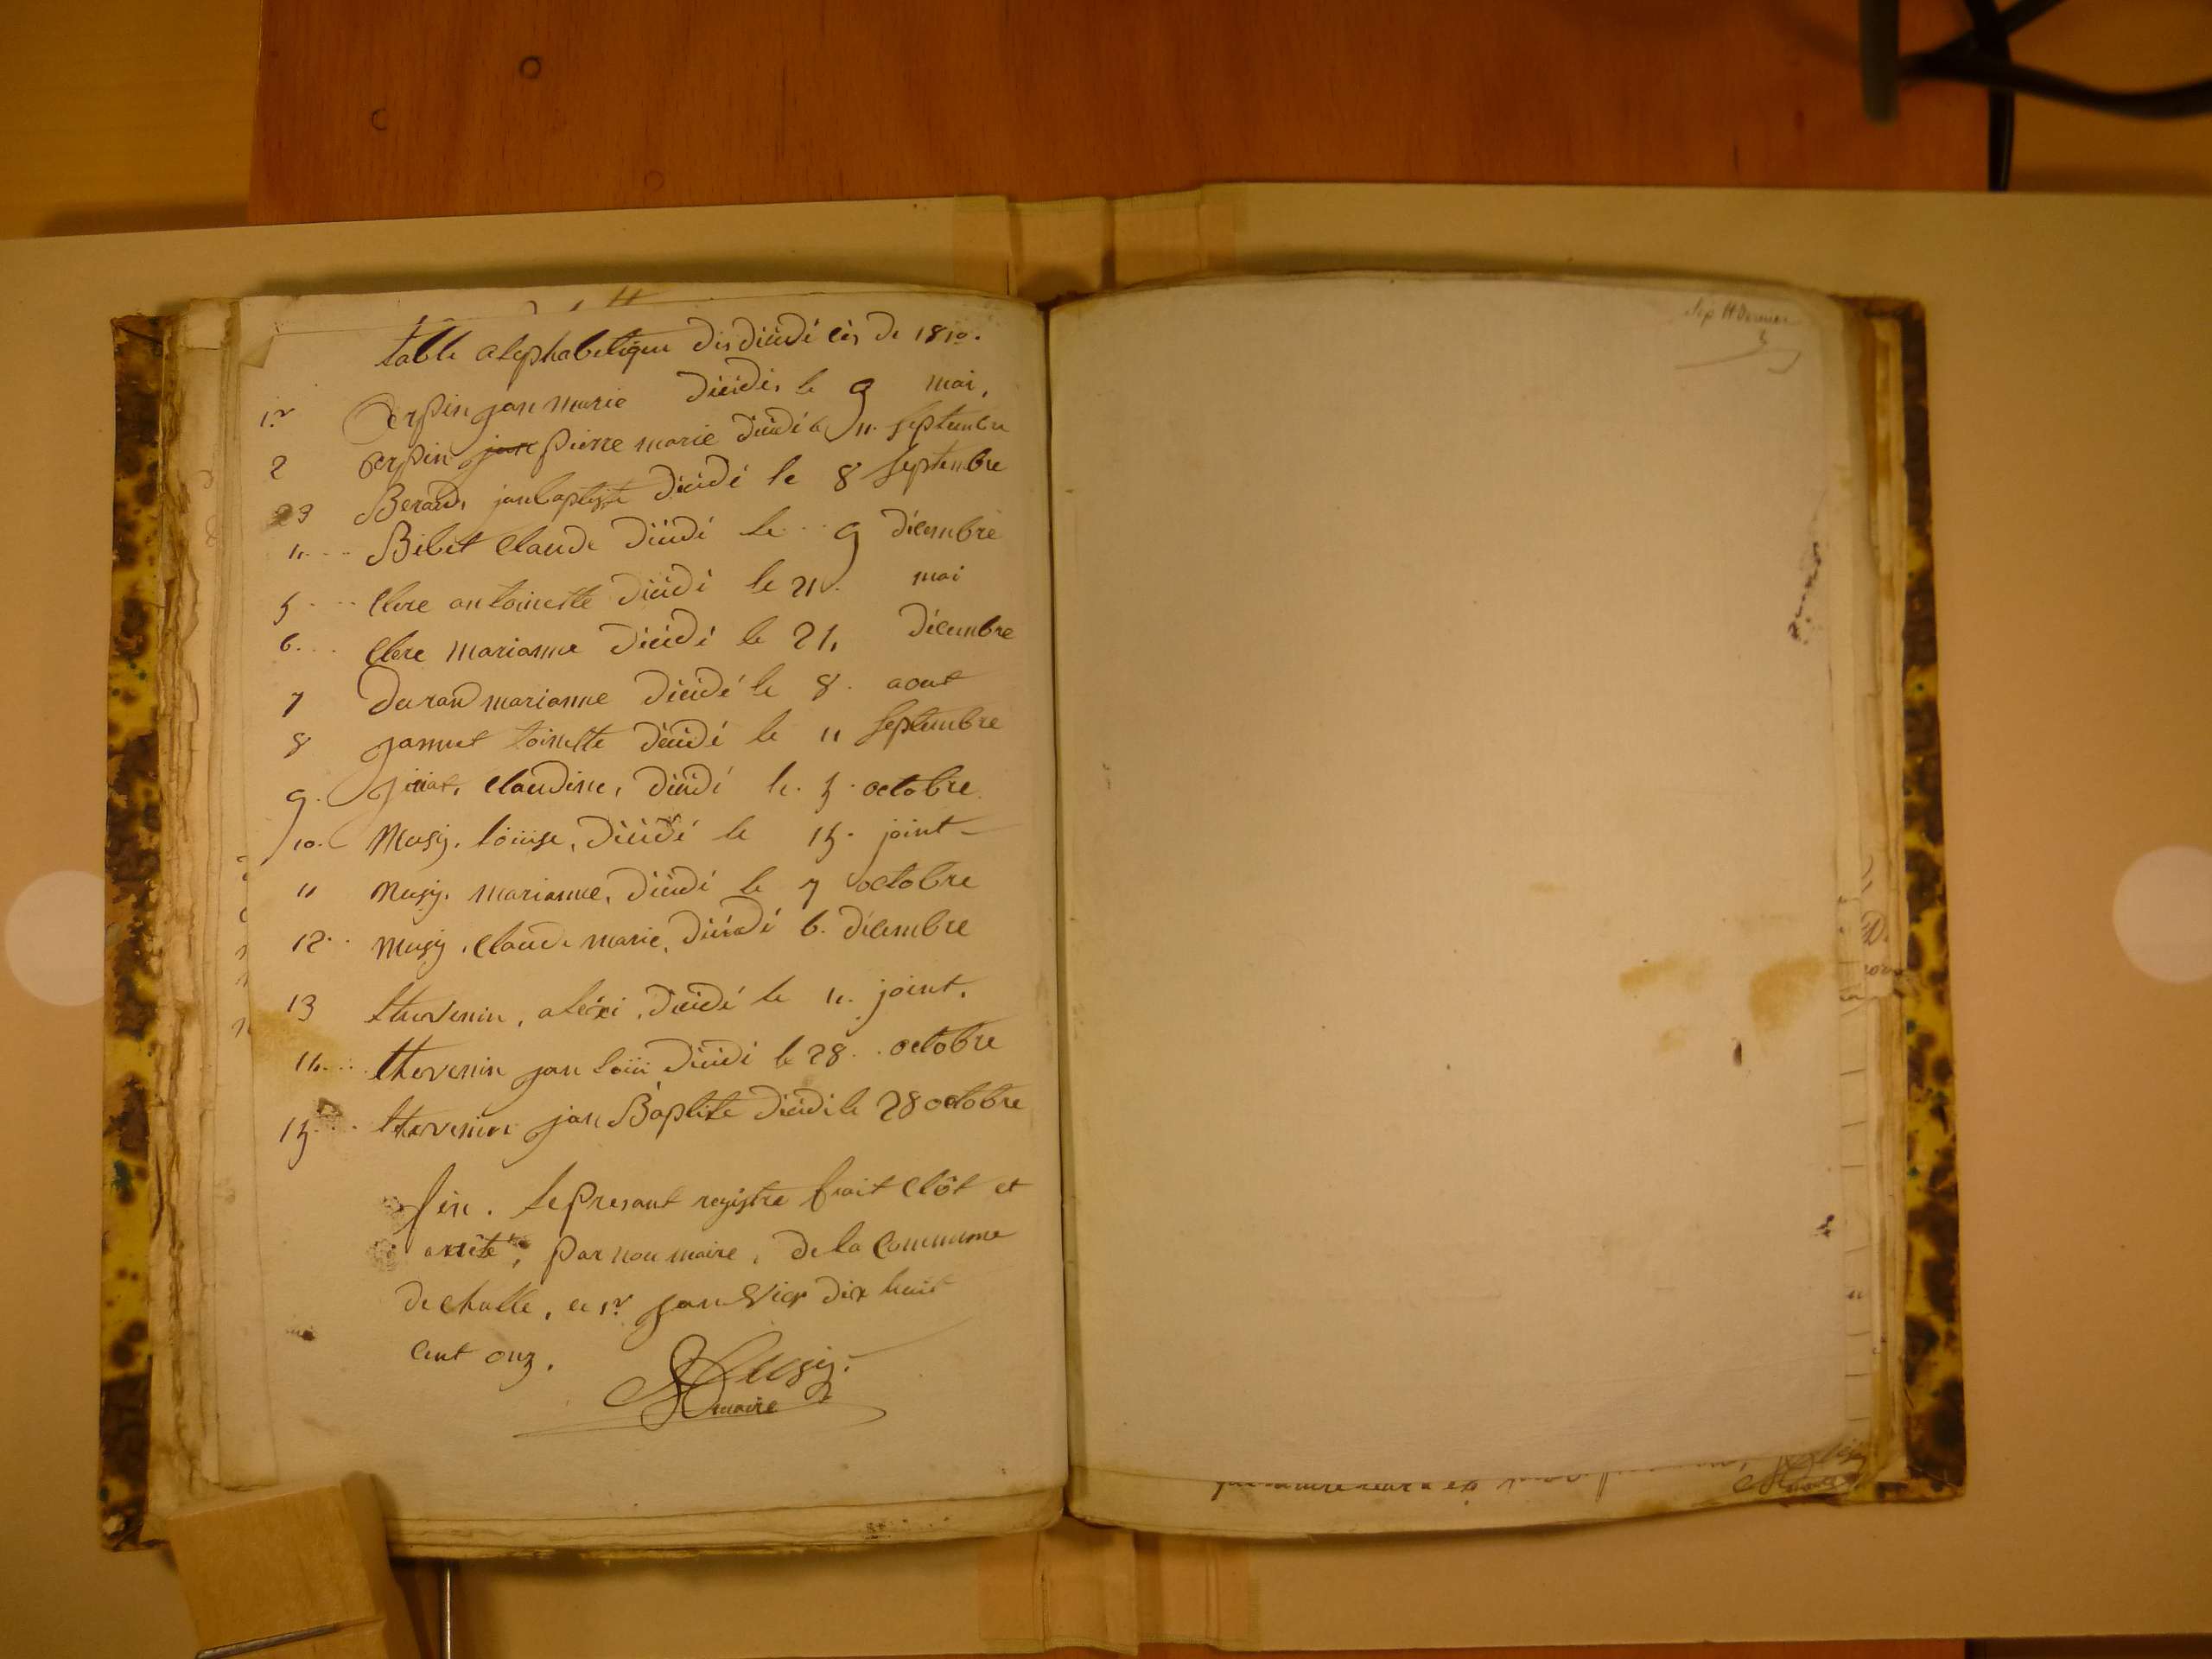 table alephabetique des décédé lés de 1810.
1.r perpin jan marie décédé, le 9 mai,
2 perpin pierre marie décédé le 4. septembre
3 Beraud, jan baptiste décédé le 8 septembre
4 Bibet Claude décédé le 9 décembre
5 Clere antoinette décédé le 21. mai
6 Clere marianne décédé le 21, décembre
7 duran marianne décédé le 8. aout
8 toinette décédé le 11 septembre
9. Claudine, décédé le. 5. octobre
10. Musy. loüise, décédé le 15. joint
11 Musy. marianne, décédé le 7 octobre
12 Musy, Claude marie, décédé 6. décembre
13 thevenin, aléxi, décédé le 4. joint.
14 thevenin jan loüi décédé le 28. octobre
15 thevenin jan Baptiste décédé le 28 octobre
fin. le presant registre frait clôt et
arrêté, par nou maire, de la Commune
de challe, le 1.r janvier dix huit
cent onz.
Musy.
maire